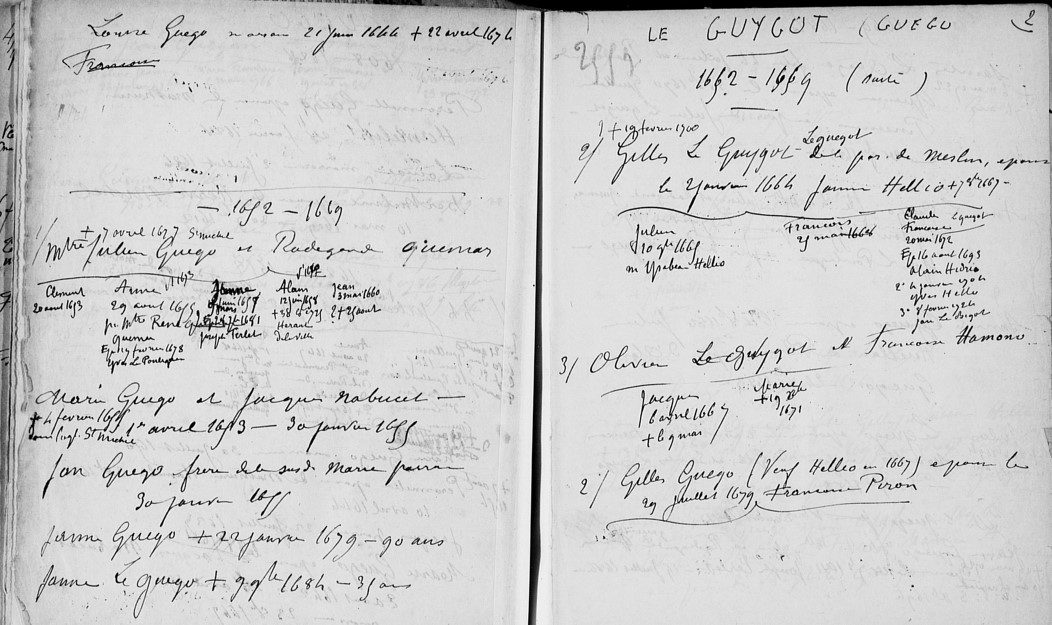 Louise Guego marraine 21 juin 1666 + 22 avril 1676
Francois
1652 - 1669
+ 7 avril 1677 St michel
1/ Mtre Julien Guego et Radegand Guemar
Clement
20 aout 1653
Anne
29 avril 1655
par Mtre Rene
Guemar
Ep 19 fevrier 1678
Yves Le Pontois
Jeanne
1681
Joseph Terlet
Alain
12 juin 1658
Herault
Jean
3 mai 1660
+ 25 aout
Marie Guego et Jacques Nabucet
+ 4 fevrier
dans l'egl. St Michel
1er avril 1653 - 30 janvier 1655
Jan Guego frere de la susd. Marie parrain
30 janvier 1655
Janne Guego + 22 janvier 1679 - 90 ans
Janne Le Guego + 9 9bre 1684 - 35 ans
2
LE GUYGOT (GUEGO
1652 - 1669 (suite)
+ 19 fevrier 1700
2/ Gilles Le Guygot - Le guegot de la par. de Meslin, epouse
le 2 janvier 1664 Janne Hellio + 7bre 1667 -
Julien
10 9bre 1665
m Ysabeau Hellio
Francois
25 mai 1666
Claude Lguygot
Francoise
20 mai 1672
Ep 16 aout 1693
Alain Hidrio
2° 6 janvier 1704
Yves Hello
3° 8 fevrier 1724
Jan Le Bigot
3/ Olivier Le Guygot et Francoise Hamono
Jacques
6 avril 1667
+ 6 9 mai
Marie
+ 19 Xbre
1671
2°/ Gilles Guego (Veuf Hellio en 1667) epouse le
29 juillet 1679 Francoise Piron